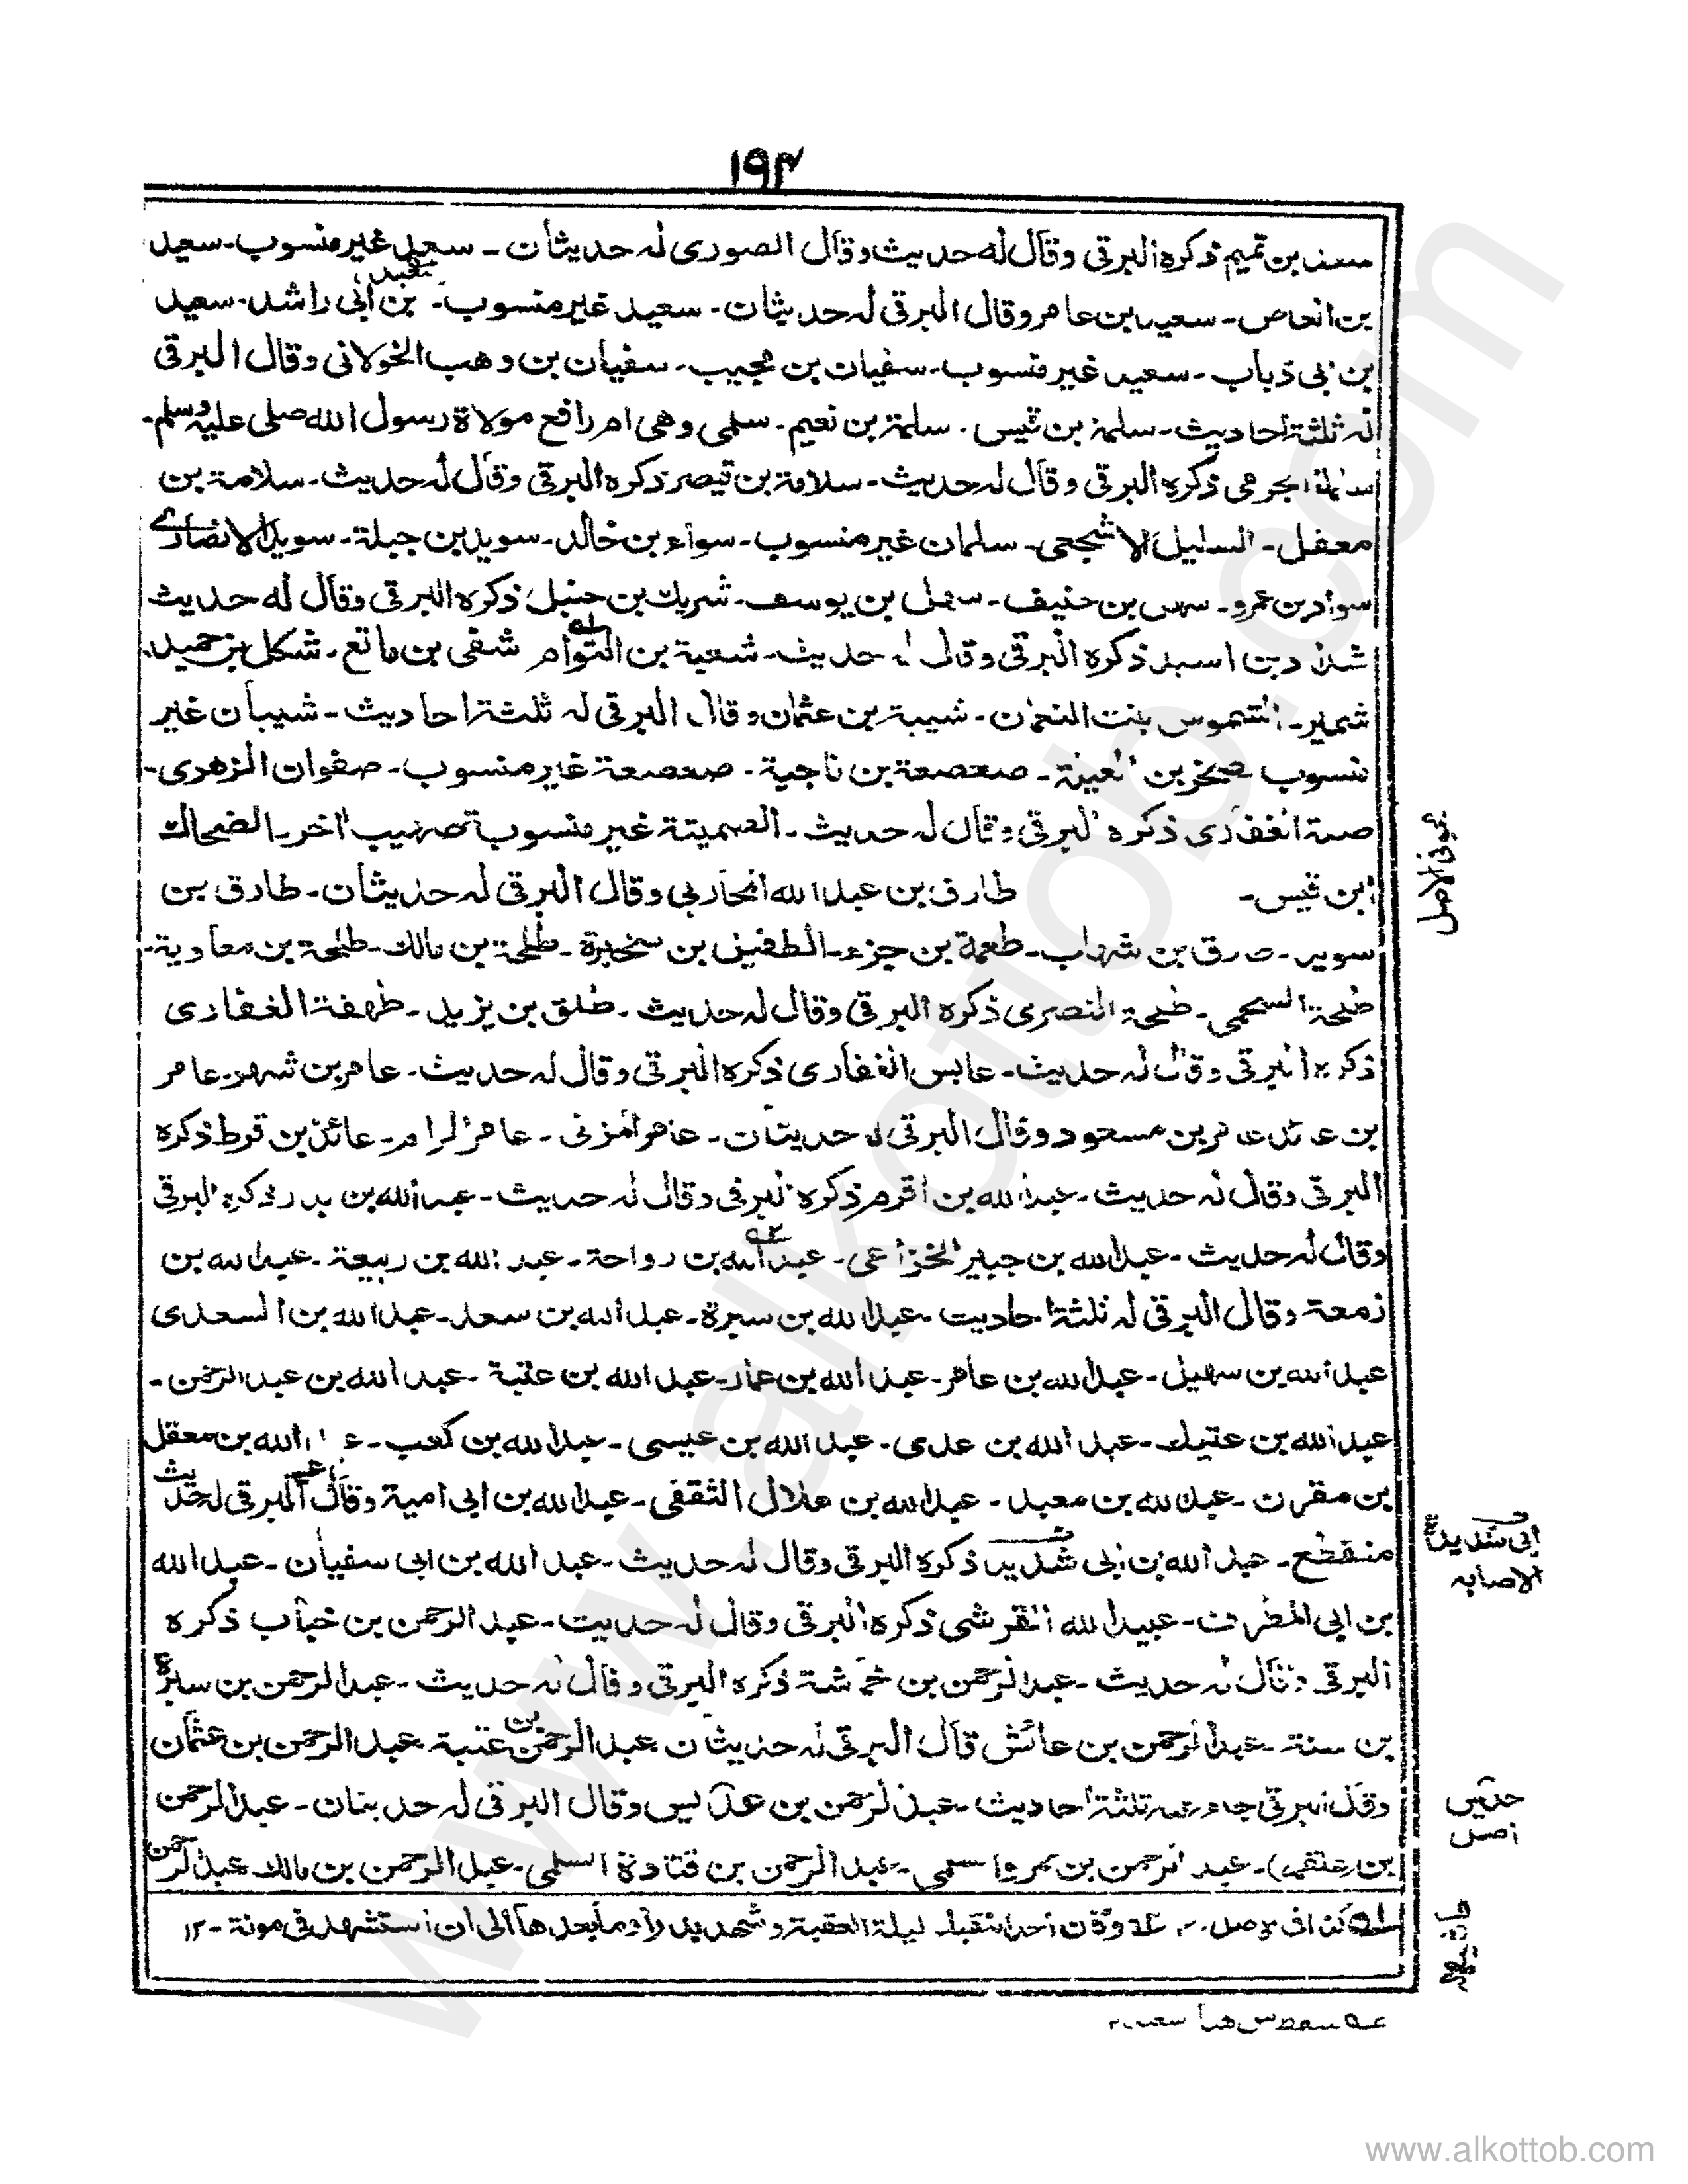 ١٩٤
سعد بن تميم ذكره البرقي وقال له حديث وقال الصورى له حديثان - سعيد غير منسوب - سعيد
بن العاص - سعيد بن عامر وقال البرقى له حديثان - سعيد غير منسوب - بن ابى راشد - سعيد
بن ابى ذباب - سعيد غير منسوب - سفيان بن مجيب - سفيان بن وهب الخولانى وقال البرقى
له ثلثة احاديث - سلمة بن قيس - سلمة بن نعيم - سلمى وهى ام رافع مولاة رسول الله صلى عليه وسلم -
سلمة الجرمى ذكره البرقى وقال له حديث - سلامة بن قيصر ذكره البرقى وقال له حديث - سلامة بن
معقل - السليل الاشجعى - سلمان غير منسوب - سواء بن خالد - سويد بن جبلة - سويد الانصارے
سواد بن عمرو - سهل بن حنيف - سهل بن يوسف - شريك بن حنبل ذكره البرقى وقال له حديث
شداد بن اسيد ذكره البرقى وقال له حديث - شعبة بن التوام شفى بن ماتع - شكل بن حميد
شمير - الشموس بنت النعمان - شيبة بن عثمان وقال البرقى له ثلثة احاديث - شيبان غير
منسوب صخر بن العيينة - صعصعة بن ناجية - صعصعة غير منسوب - صفوان الزهرى -
صمة الغفارى ذكره البرقى وقال له حديث - الصميتة غير منسوبة صهيب اخر - الضحاك
ابن قيس - طارق بن عبد الله المحاربى وقال البرقى له حديثان - طارق بن
سويد - طارق بن شهاب - طعمة بن جزء - الطفيل بن سخبرة - طلحة بن مالك - طلحة بن معاوية -
طلحة السحيمى - طلحة النصرى ذكره البرقى وقال له حديث - طلق بن يزيد - طهفة الغفارى
ذكره البرقى وقال له حديث - عابس الغفارى ذكره البرقى وقال له حديث - عامر بن شهر - عامر
بن عائذ عامر بن مسعود وقال البرقى له حديثان - عامر المزنى - عامر الرام - عائذ بن قرط ذكره
البرقى وقال له حديث - عبد الله بن اقرم ذكره البرقى وقال له حديث - عبد الله بن بدر ذكره البرقى
وقال له حديث - عبد الله بن جبير الخزاعى - عبد الله بن رواحة - عبد الله بن ربيعة - عبد الله بن
زمعة وقال البرقى له ثلثة احاديث - عبد الله بن سبرة - عبد الله بن سعد - عبد الله بن السعدى
عبد الله بن سهيل - عبد الله بن عامر - عبد الله بن عمار - عبد الله بن عتبة - عبد الله بن عبد الرحمن -
عبد الله بن عتيك - عبد الله بن عدى - عبد الله بن عيسى - عبد الله بن كعب - عبد الله بن معقل
بن مقرن - عبد الله بن معبد - عبد الله بن هلال الثقفى - عبد الله بن ابى امية وقال البرقى له حديث
منقطع - عبد الله بن ابى شديد ذكره البرقى وقال له حديث - عبد الله بن ابى سفيان - عبد الله
بن ابى المطرف - عبيد الله القرشى ذكره البرقى وقال له حديث - عبد الرحمن بن خباب ذكره
البرقى وقال له حديث - عبد الرحمن بن خماشة ذكره البرقى وقال له حديث - عبد الرحمن بن سبرة
بن سنة - عبد الرحمن بن عائش قال البرقى له حديثان عبد الرحمن بن عتبة عبد الرحمن بن عثمان
وقال البرقى جاء عنه ثلثة احاديث - عبد الرحمن بن عدیس وقال البرقى له حديثان - عبد الرحمن
بن (علقمة) - عبد الرحمن بن عمرو السلمى - عبد الرحمن بن قتادة السلمى - عبد الرحمن بن مالك عبد الرحمن
كذا فى الاصل ١٢ وكان احد النقباء ليلة العقبة وشهد بدرا وما بعدها الى ان استشهد فى موتة - ١٢
فى الاصل
ابى شديد
الاصابه
حديثين
اصل
www.alkottob.com